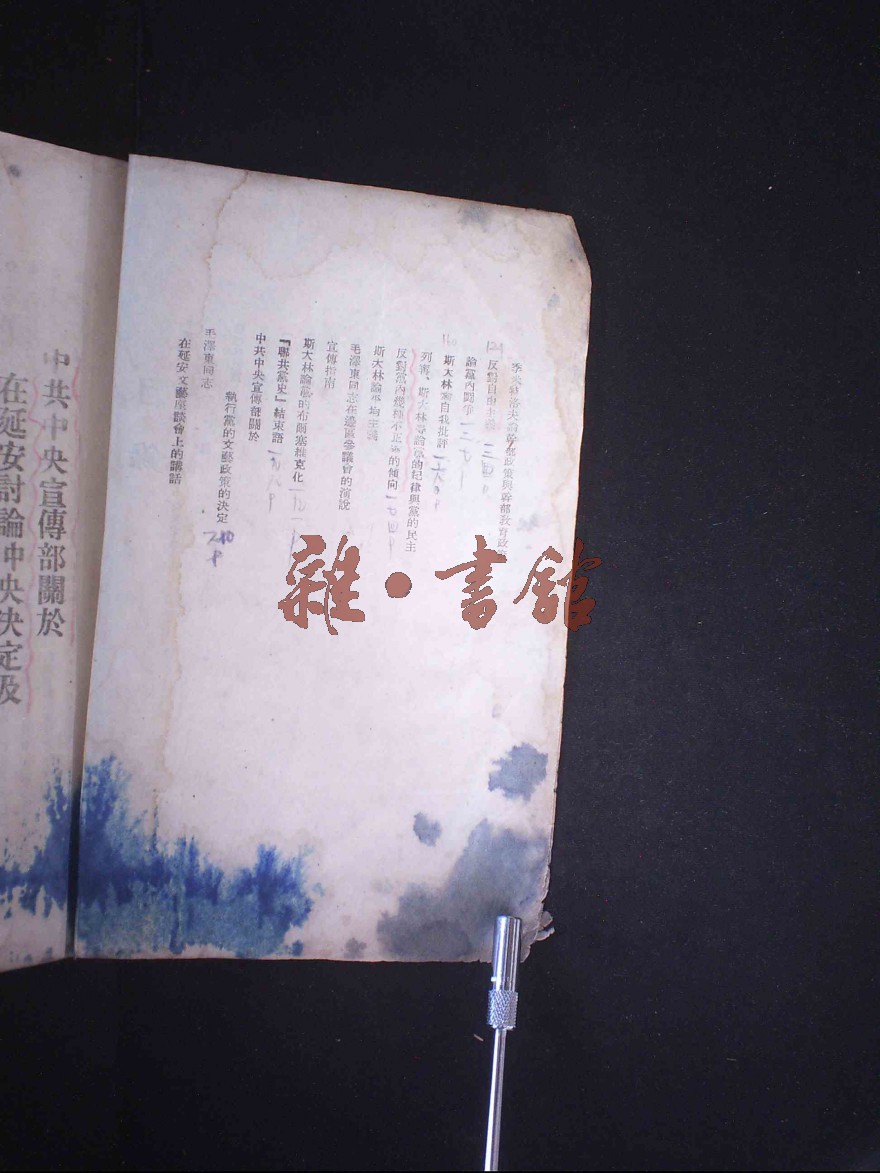 季米特洛夫論幹部政策與幹部教育政策
反對自由主義 一三四P
論黨內鬪爭 一三九P
斯大林論自我批評 一六〇P
列寧、斯大林等論黨的紀律與黨的民主
反對黨內幾種不正確的傾向 一七四P
斯大林論平均主義
毛澤東同志在邊區參議會的演說
宣傳指南
斯大林論黨的布爾塞維克化 一九一P
「聯共黨史」結束語 一九八P
中共中央宣傳部關於
執行黨的文藝政策的決定 210P
毛澤東同志
在延安文藝座談會上的講話
中共中央宣傳部關於
在延安討論中央決定及
雜·書館